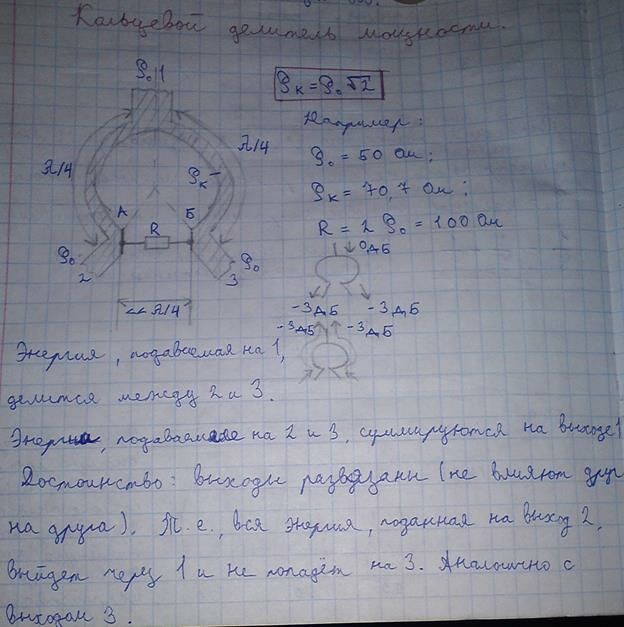 Кольцевой делитель мощности.
ρ₀ 1
ρк = ρ₀ √2
Например:
λ/4
λ/4
ρ₀ = 50 Ом;
ρк
ρк = 70,7 Ом;
А Б
R
R = 2 ρ₀ = 100 Ом
ρ₀ ρ₀
2 3
0 дБ
<< λ/4
-3 дБ -3 дБ
-3 дБ -3 дБ
Энергия, подаваемая на 1,
делится между 2 и 3.
Энергии, подаваемые на 2 и 3, суммируются на выходе 1
Достоинство: выходы развязаны (не влияют друг
на друга). Т.е., вся энергия, поданная на выход 2,
выйдет через 1 и не попадёт на 3. Аналогично с
выходом 3.